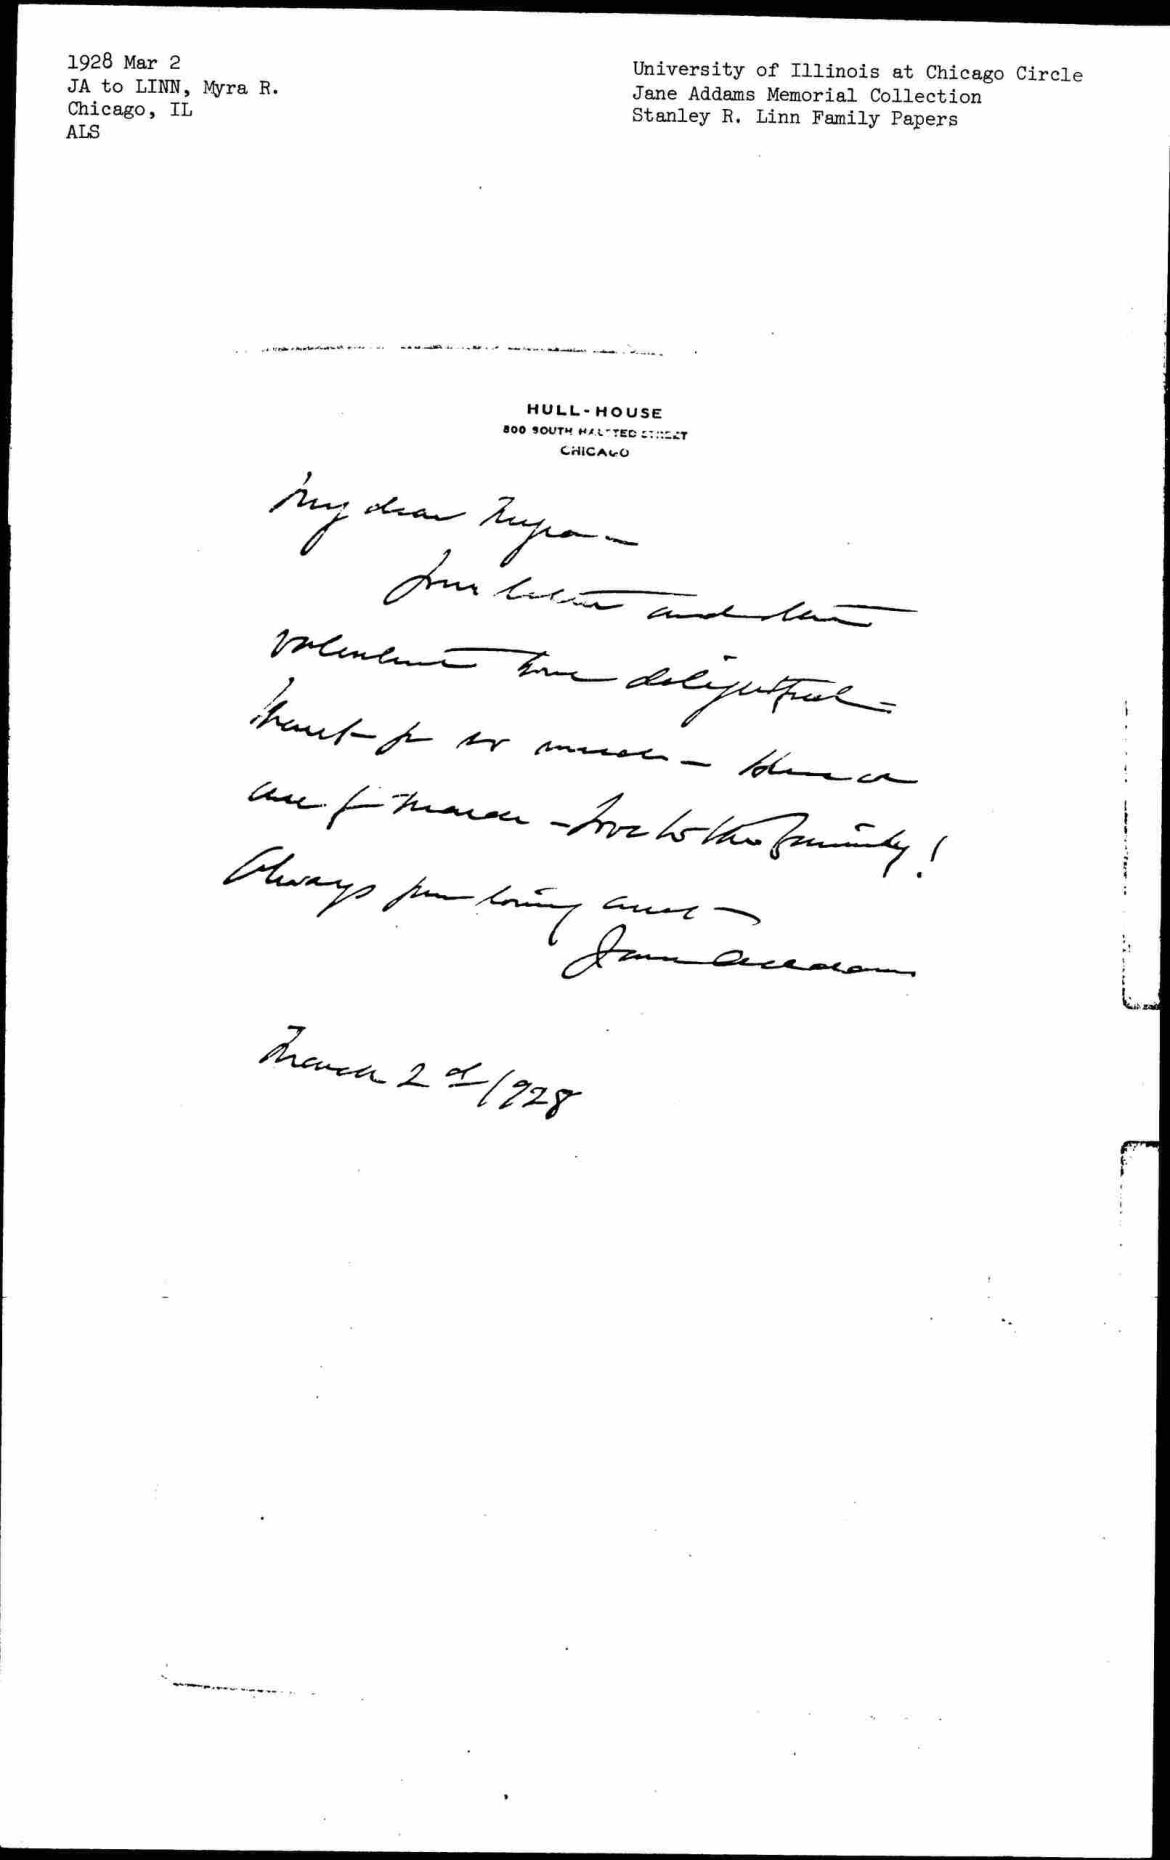 1928 Mar 2
JA to LINN, Myra R.
Chicago, IL
ALS
University of Illinois at Chicago Circle
Jane Addams Memorial Collection
Stanley R. Linn Family Papers
HULL-HOUSE
800 SOUTH HALSTED STREET
CHICAGO
My dear Myra -
Your letter and
valentine were delightful -
thank you so much -
for March - love to the family!
Always your loving aunt -
Jane Addams
March 2d 1928